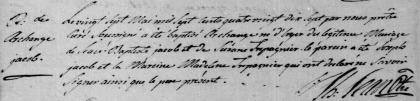 B. de
Archange
jacob.
Le vingt Sept Mai mil sept cents quatre vingt dix Sept par nous prêtre
Curé Soussigné a été baptisé Archange né d'hyer du légitime Mariage
de Jean Baptiste jacob et de Susane Trepagnier le parein a été Joseph
jacob et la Mareine Madeleine Trepagnier qui ont déclaré ne Savoir
Signer ainsi que le pere présent.